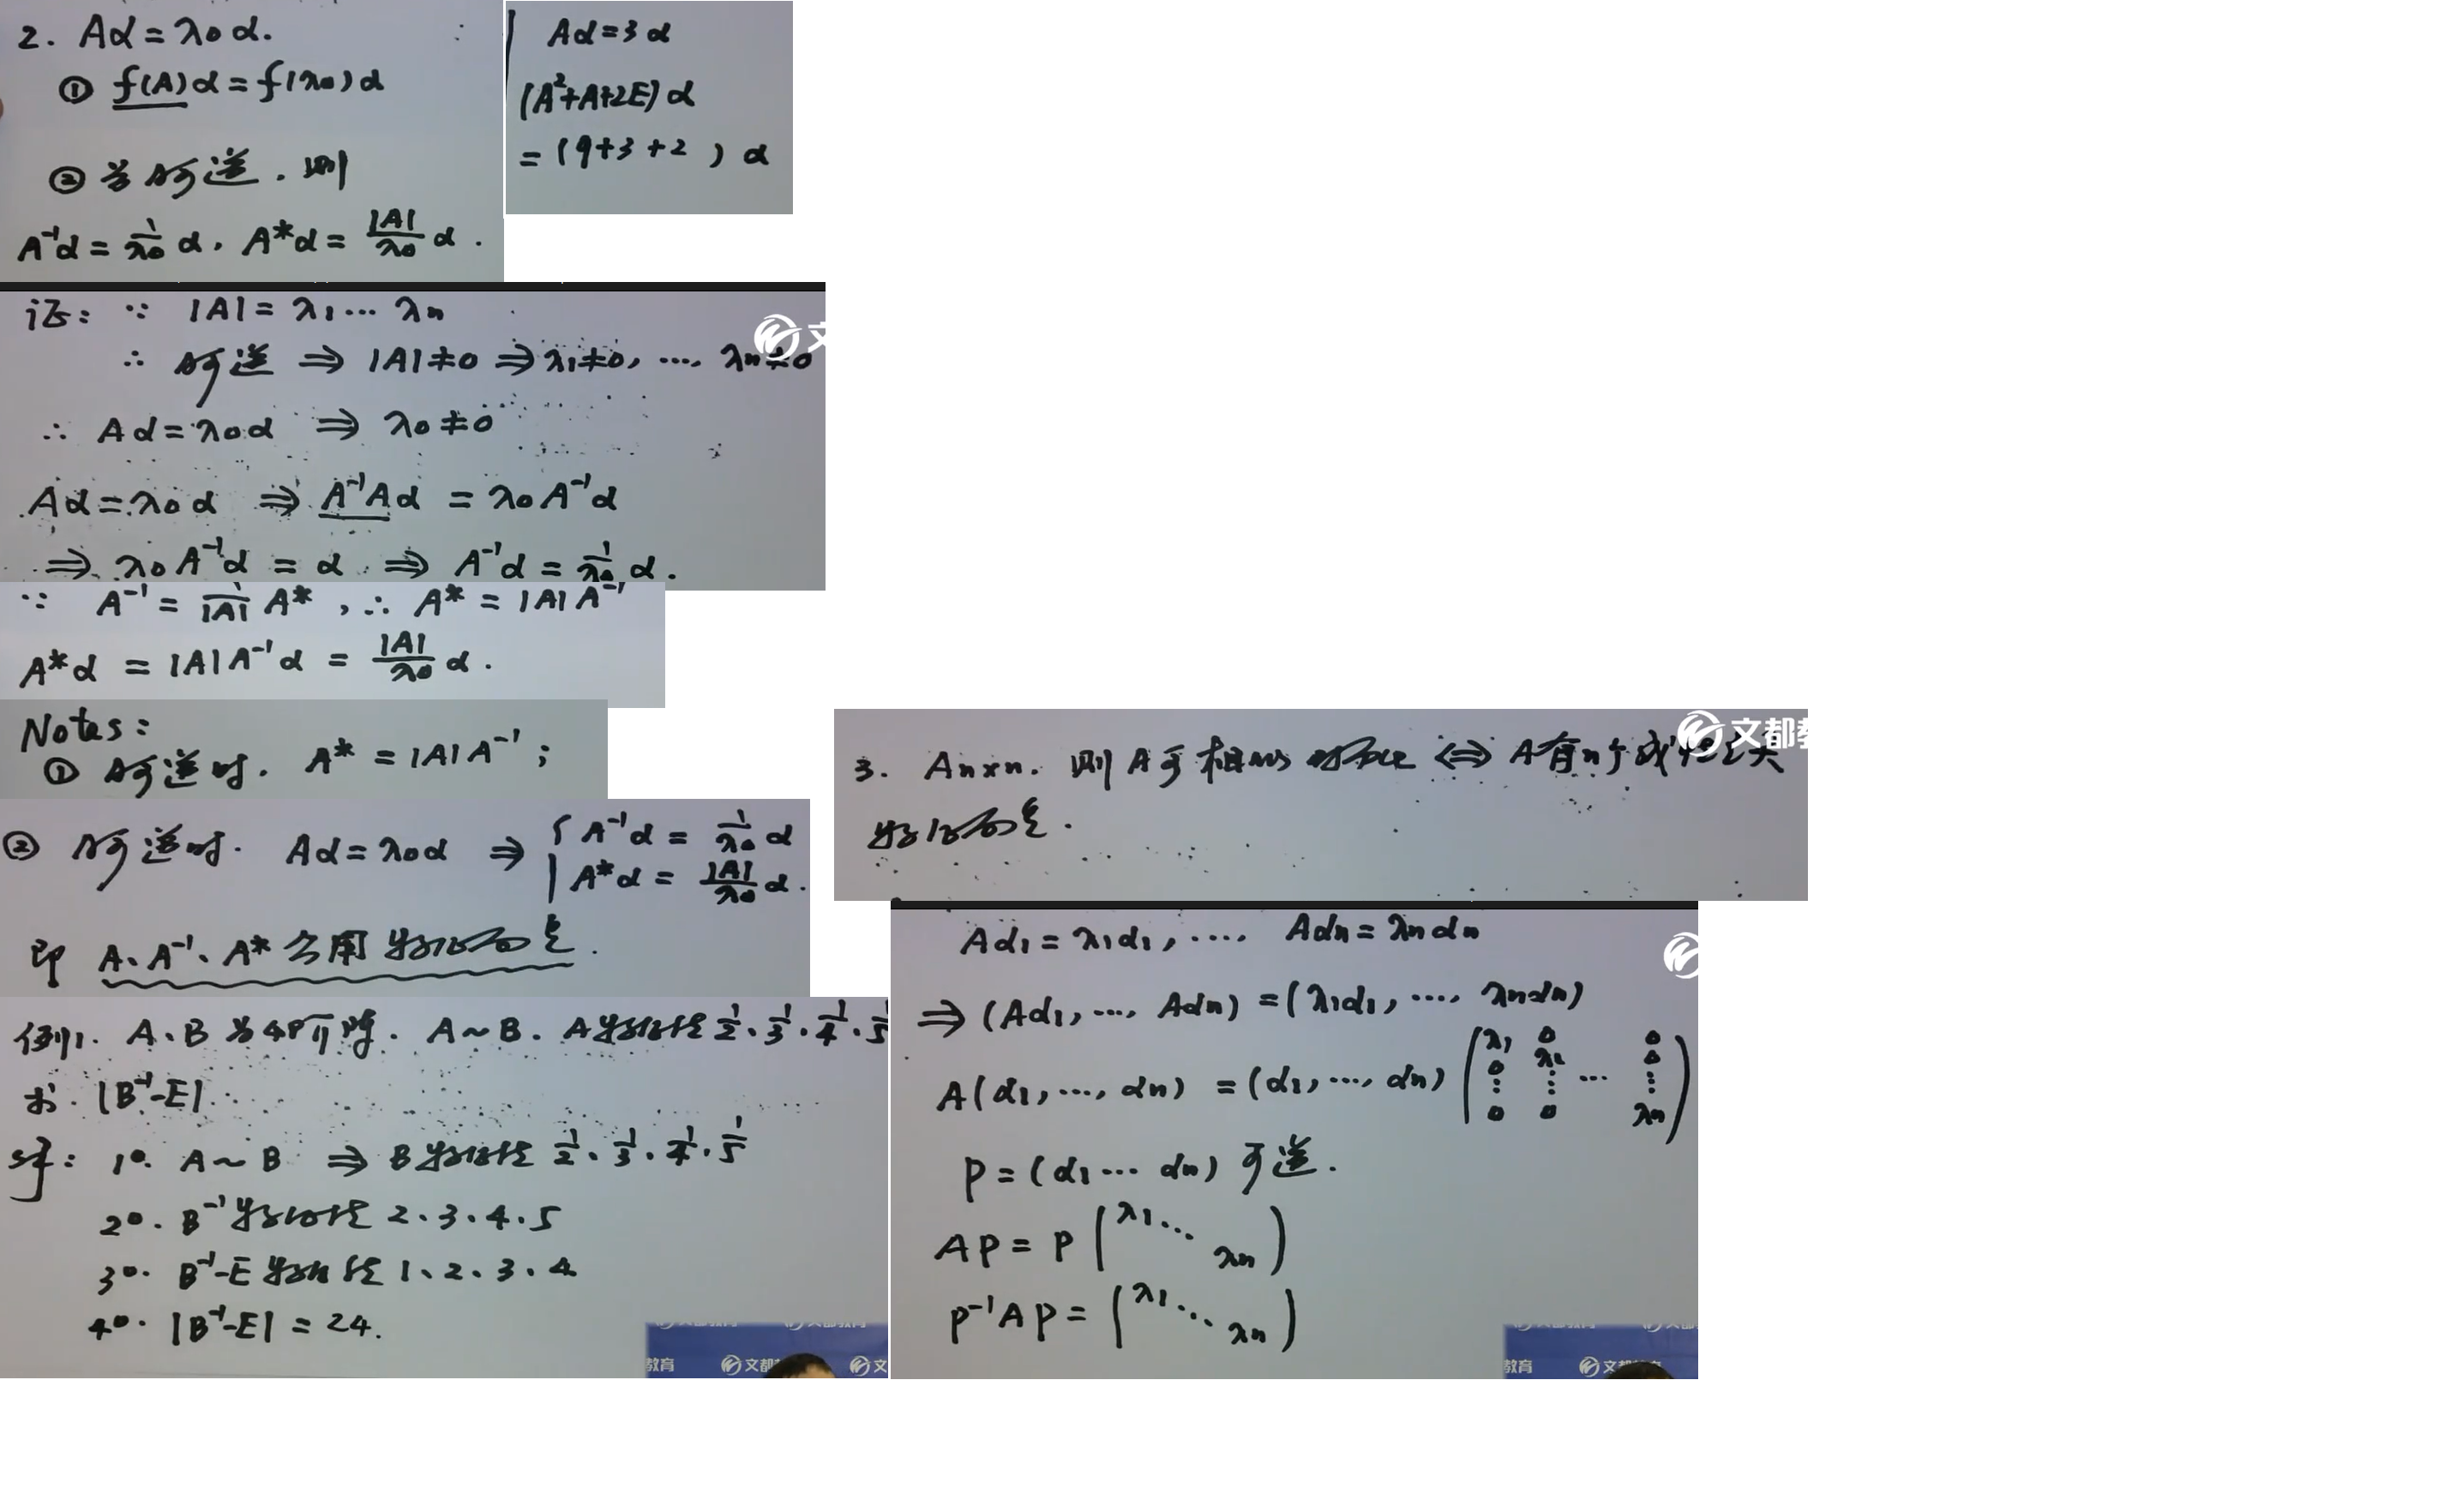 2. Aα = λ₀α.
① f(A)α = f(λ₀)α
② 若A可逆. 则
A⁻¹α = 1/λ₀ α, A*α = |A|/λ₀ α.
Aα = 3α
(A²+A+2E)α
= (9+3+2 )α
证: ∵ |A| = λ₁⋯λn
∴ A可逆 ⇒ |A|≠0 ⇒ λ₁≠0, ⋯, λn≠0
∴ Aα = λ₀α ⇒ λ₀≠0
Aα = λ₀α ⇒ A⁻¹Aα = λ₀A⁻¹α
⇒ λ₀A⁻¹α = α ⇒ A⁻¹α = 1/λ₀ α.
∵ A⁻¹ = 1/|A| A*, ∴ A* = |A|A⁻¹
A*α = |A|A⁻¹α = |A|/λ₀ α.
Notes:
① A可逆时. A* = |A|A⁻¹;
② A可逆时. Aα = λ₀α ⇒ { A⁻¹α = 1/λ₀ α
A*α = |A|/λ₀ α.
即 A、A⁻¹、A* 公用特征向量.
例1. A、B为4阶阵. A~B. A特征值 1/2、1/3、1/4、1/5
求 |B⁻¹-E|.
解: 1°. A~B ⇒ B特征值 1/2、1/3、1/4、1/5
2°. B⁻¹特征值 2、3、4、5
3°. B⁻¹-E特征值 1、2、3、4
4°. |B⁻¹-E| = 24.
教育 文都 文
3. An×n. 则A可相似对角化 ⇔ A有n个线性无关
特征向量.
文都教
Aα₁ = λ₁α₁, ⋯, Aαn = λnαn
⇒ (Aα₁, ⋯, Aαn) = (λ₁α₁, ⋯, λnαn)
A(α₁, ⋯, αn) = (α₁, ⋯, αn) ( λ₁ 0 0
0 λ₂ 0
⋮ ⋮ ⋯ ⋮
0 0 λn )
P = (α₁ ⋯ αn) 可逆.
AP = P ( λ₁ ⋱ λn )
P⁻¹AP = ( λ₁ ⋱ λn )
教育